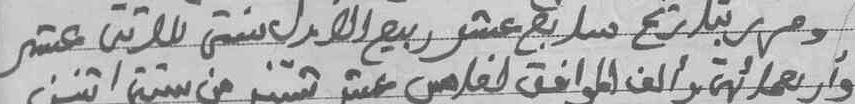 وحرر بتاريخ سابع عشر ربيع الأول سنة ثلاثة عشر
وأربعمائة وألف الموافق لخامس عشر شتنبر من سنة اثنين